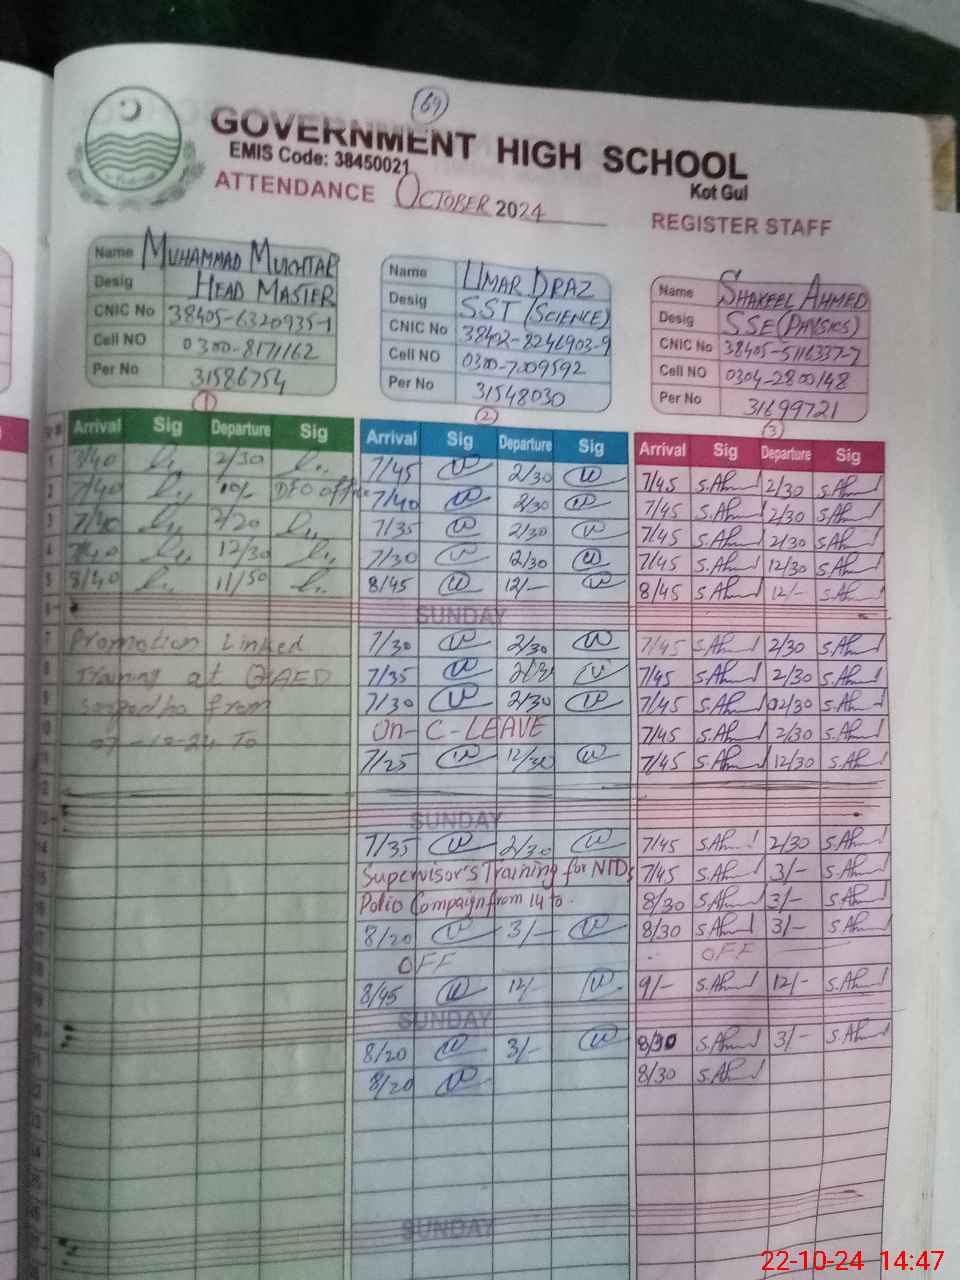 69
GOVERNMENT HIGH SCHOOL
EMIS Code: 38450021
Kot Gul
ATTENDANCE OCTOBER 2024
REGISTER STAFF
Name MUHAMMAD MUKHTAR
Desig HEAD MASTER
CNIC No 38405-6320935-1
Cell NO 0300-8171162
Per No 31586754
Name UMAR DRAZ
Desig SST (SCIENCE)
CNIC No 38402-8246903-9
Cell NO 0300-7009592
Per No 31548030
Name SHAKEEL AHMED
Desig SSE (PHYSICS)
CNIC No 38405-5116337-7
Cell NO 0304-2800148
Per No 31699721
1 2 3
Arrival Sig Departure Sig Arrival Sig Departure Sig Arrival Sig Departure Sig
1 7/40 2/30 7/45 2/30 7/45 S.Ahmed 2/30 S.Ahmed
2 7/40 DEO office 7/40 2/30 7/45 S.Ahmed 2/30 S.Ahmed
3 7/40 2/20 7/35 2/30 7/45 S.Ahmed 2/30 S.Ahmed
4 7/40 12/30 7/30 12/30 7/45 S.Ahmed 12/30 S.Ahmed
5 8/40 11/50 8/45 12/- 8/45 S.Ahmed 12/- S.Ahmed
6 SUNDAY
7 Promotion Linked 7/30 2/30 7/45 S.Ahmed 2/30 S.Ahmed
8 Training at QAED 7/35 2/30 7/45 S.Ahmed 2/30 S.Ahmed
9 sargodha from 7/30 2/30 7/45 S.Ahmed 02/30 S.Ahmed
10 07-10-24 To On- C-LEAVE 7/45 S.Ahmed 2/30 S.Ahmed
11 7/25 12/30 7/45 S.Ahmed 12/30 S.Ahmed
12
13 SUNDAY
14 7/35 2/30 7/45 S.Ahmed 2/30 S.Ahmed
15 Supervisor's Training for NIDs 7/45 S.Ahmed 3/- S.Ahmed
16 Polio Campaign from 14 to. 8/30 S.Ahmed 3/- S.Ahmed
17 8/20 3/- 8/30 S.Ahmed 3/- S.Ahmed
18 OFF OFF
19 8/45 12/- 9/- S.Ahmed 12/- S.Ahmed
20 SUNDAY
21 8/20 3/- 8/30 S.Ahmed 3/- S.Ahmed
22 8/20 8/30 S.Ahmed
23
24
25
26
27 SUNDAY
22-10-24 14:47